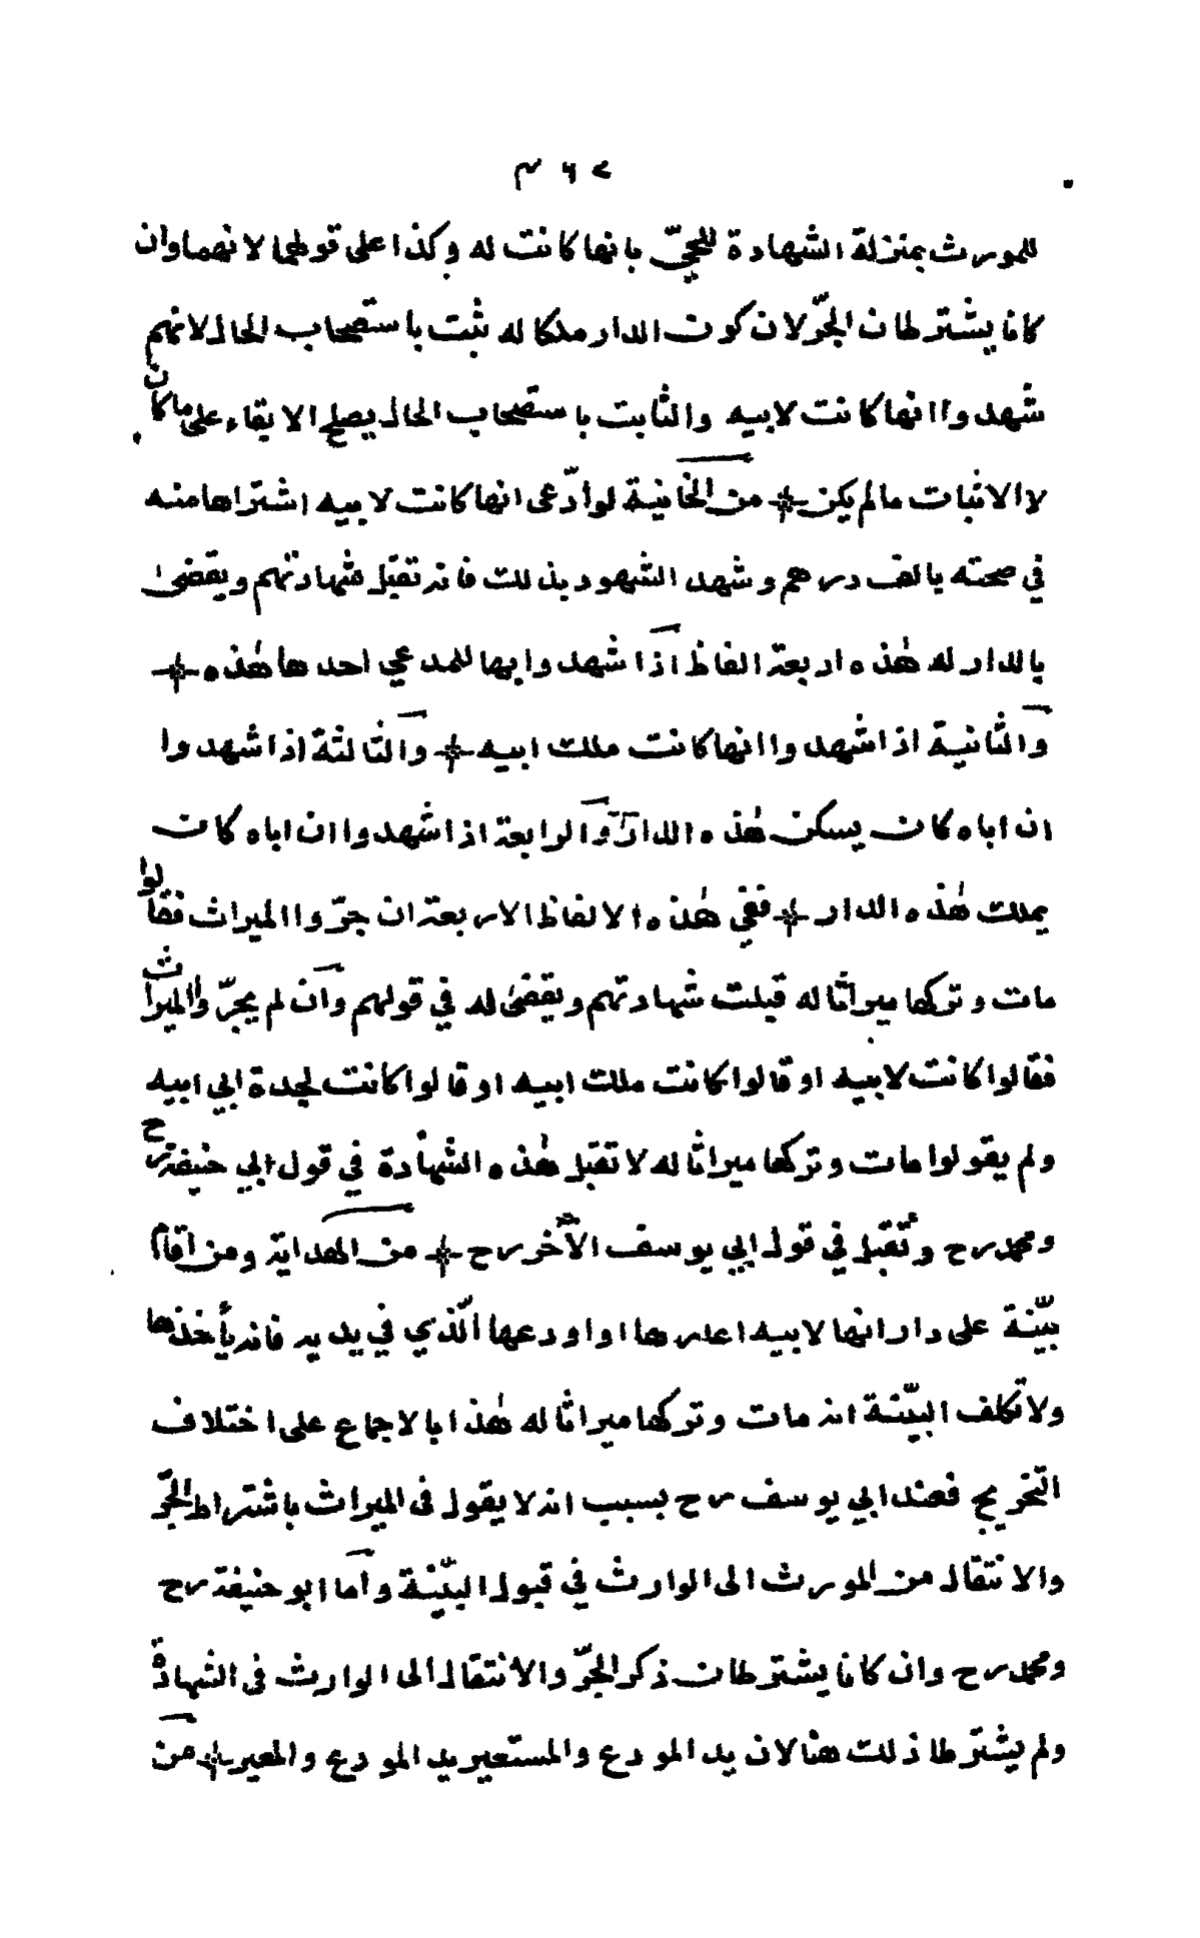 ٣٦٧
للمورث بمنزلة الشهادة للحيّ بانها كانت له وكذا على قولهما لانهما وان
كانا يشترطان الجرّ لان كون الدار ملكا له ثبت باستصحاب الحال لانهم
شهدوا انها كانت لابيه والثابت باستصحاب الحال يصلح الابقاء على ما كان
لا الاثبات مالم يكن من الخانية لو ادّعى انها كانت لابيه اشتراها منه
في صحته بالف درهم وشهد الشهود بذلك فانه تقبل شهادتهم ويقضى
بالدار له هذه اربعة الفاظ اذا شهدوا بها للمدعي احدها هذه
والثانية اذا شهدوا انها كانت ملك ابيه والثالثة اذا شهدوا
ان اباه كان يسكن هذه الدار والرابعة اذا شهدوا ان اباه كان
يملك هذه الدار ففي هذه الالفاظ الاربعة ان جرّوا الميراث فقالوا
مات وتركها ميراثا له قبلت شهادتهم ويقضى له في قولهم وان لم يجرّوا الميراث
فقالوا كانت لابيه او قالوا كانت ملك ابيه او قالوا كانت لجدة ابي ابيه
ولم يقولوا مات وتركها ميراثا له لا تقبل هذه الشهادة في قول ابي حنيفة رح
ومحمد رح وتقبل في قول ابي يوسف الآخر رح من الهداية ومن اقام
بيّنة على دار انها لابيه اعارها او اودعها الّذي في يديه فانه يأخذها
ولا تكلف البيّنة انه مات وتركها ميراثا له هذا بالاجماع على اختلاف
التخريج فعند ابي يوسف رح بسبب انه لا يقول فى الميراث باشتراط الجرّ
والانتقال من المورث الى الوارث في قبول البيّنة وأما ابو حنيفة رح
ومحمد رح وان كانا يشترطان ذكر الجرّ والانتقال الى الوارث فى الشهادة
ولم يشترطا ذلك هنا لان يد المودع والمستعير يد المودع والمعير من